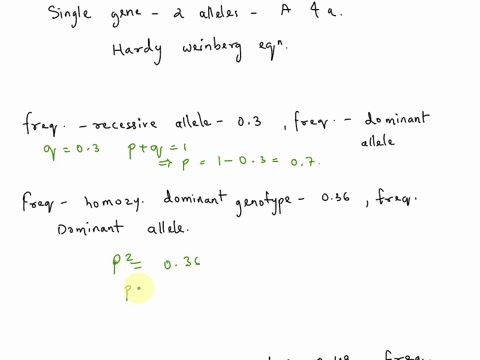 Single gene - 2 alleles - A & a.
Hardy weinberg eqn.
freq. - recessive allele - 0.3 , freq. - dominant allele
q = 0.3 p+q = 1
⇒ p = 1 - 0.3 = 0.7.
freq - homozy. dominant genotype - 0.36 , freq.
Dominant allele.
p² = 0.36
p
freq.